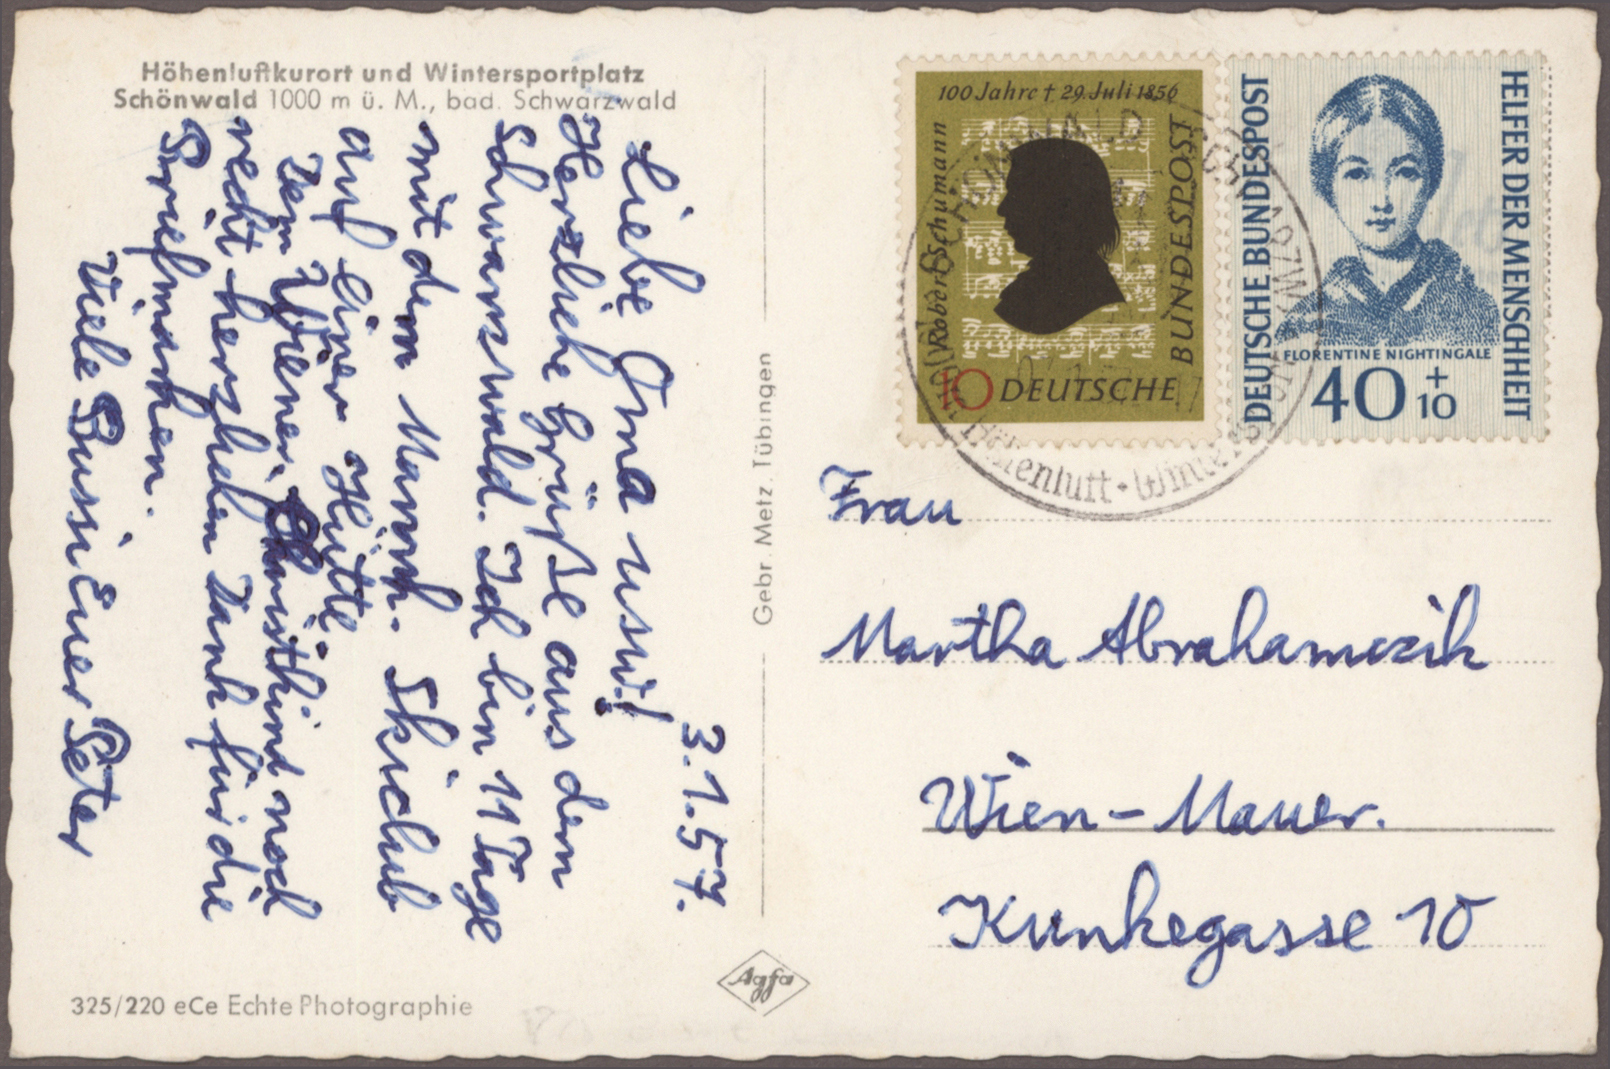 Höhenluftkurort und Wintersportplatz
Schönwald 1000 m ü. M., bad. Schwarzwald
3.1.57.
Liebe Oma usw.!
Herzliche Grüße aus dem
Schwarzwald. Ich bin 11 Tage
mit dem Mannh. Skiclub
auf einer Hütte
Dem Wiener Christkind noch
recht herzlichen Dank für die
Briefmarken.
Viele Bussi Euer Peter
325/220 eCe Echte Photographie
Gebr. Metz, Tübingen
Agfa
100 Jahre † 29. Juli 1856
Robert Schumann
10 DEUTSCHE
BUNDESPOST
DEUTSCHE BUNDESPOST
HELFER DER MENSCHHEIT
FLORENTINE NIGHTINGALE
40 + 10
Höhenluft • Winter
Frau
Martha Abrahamczik
Wien - Mauer.
Kunkegasse 10